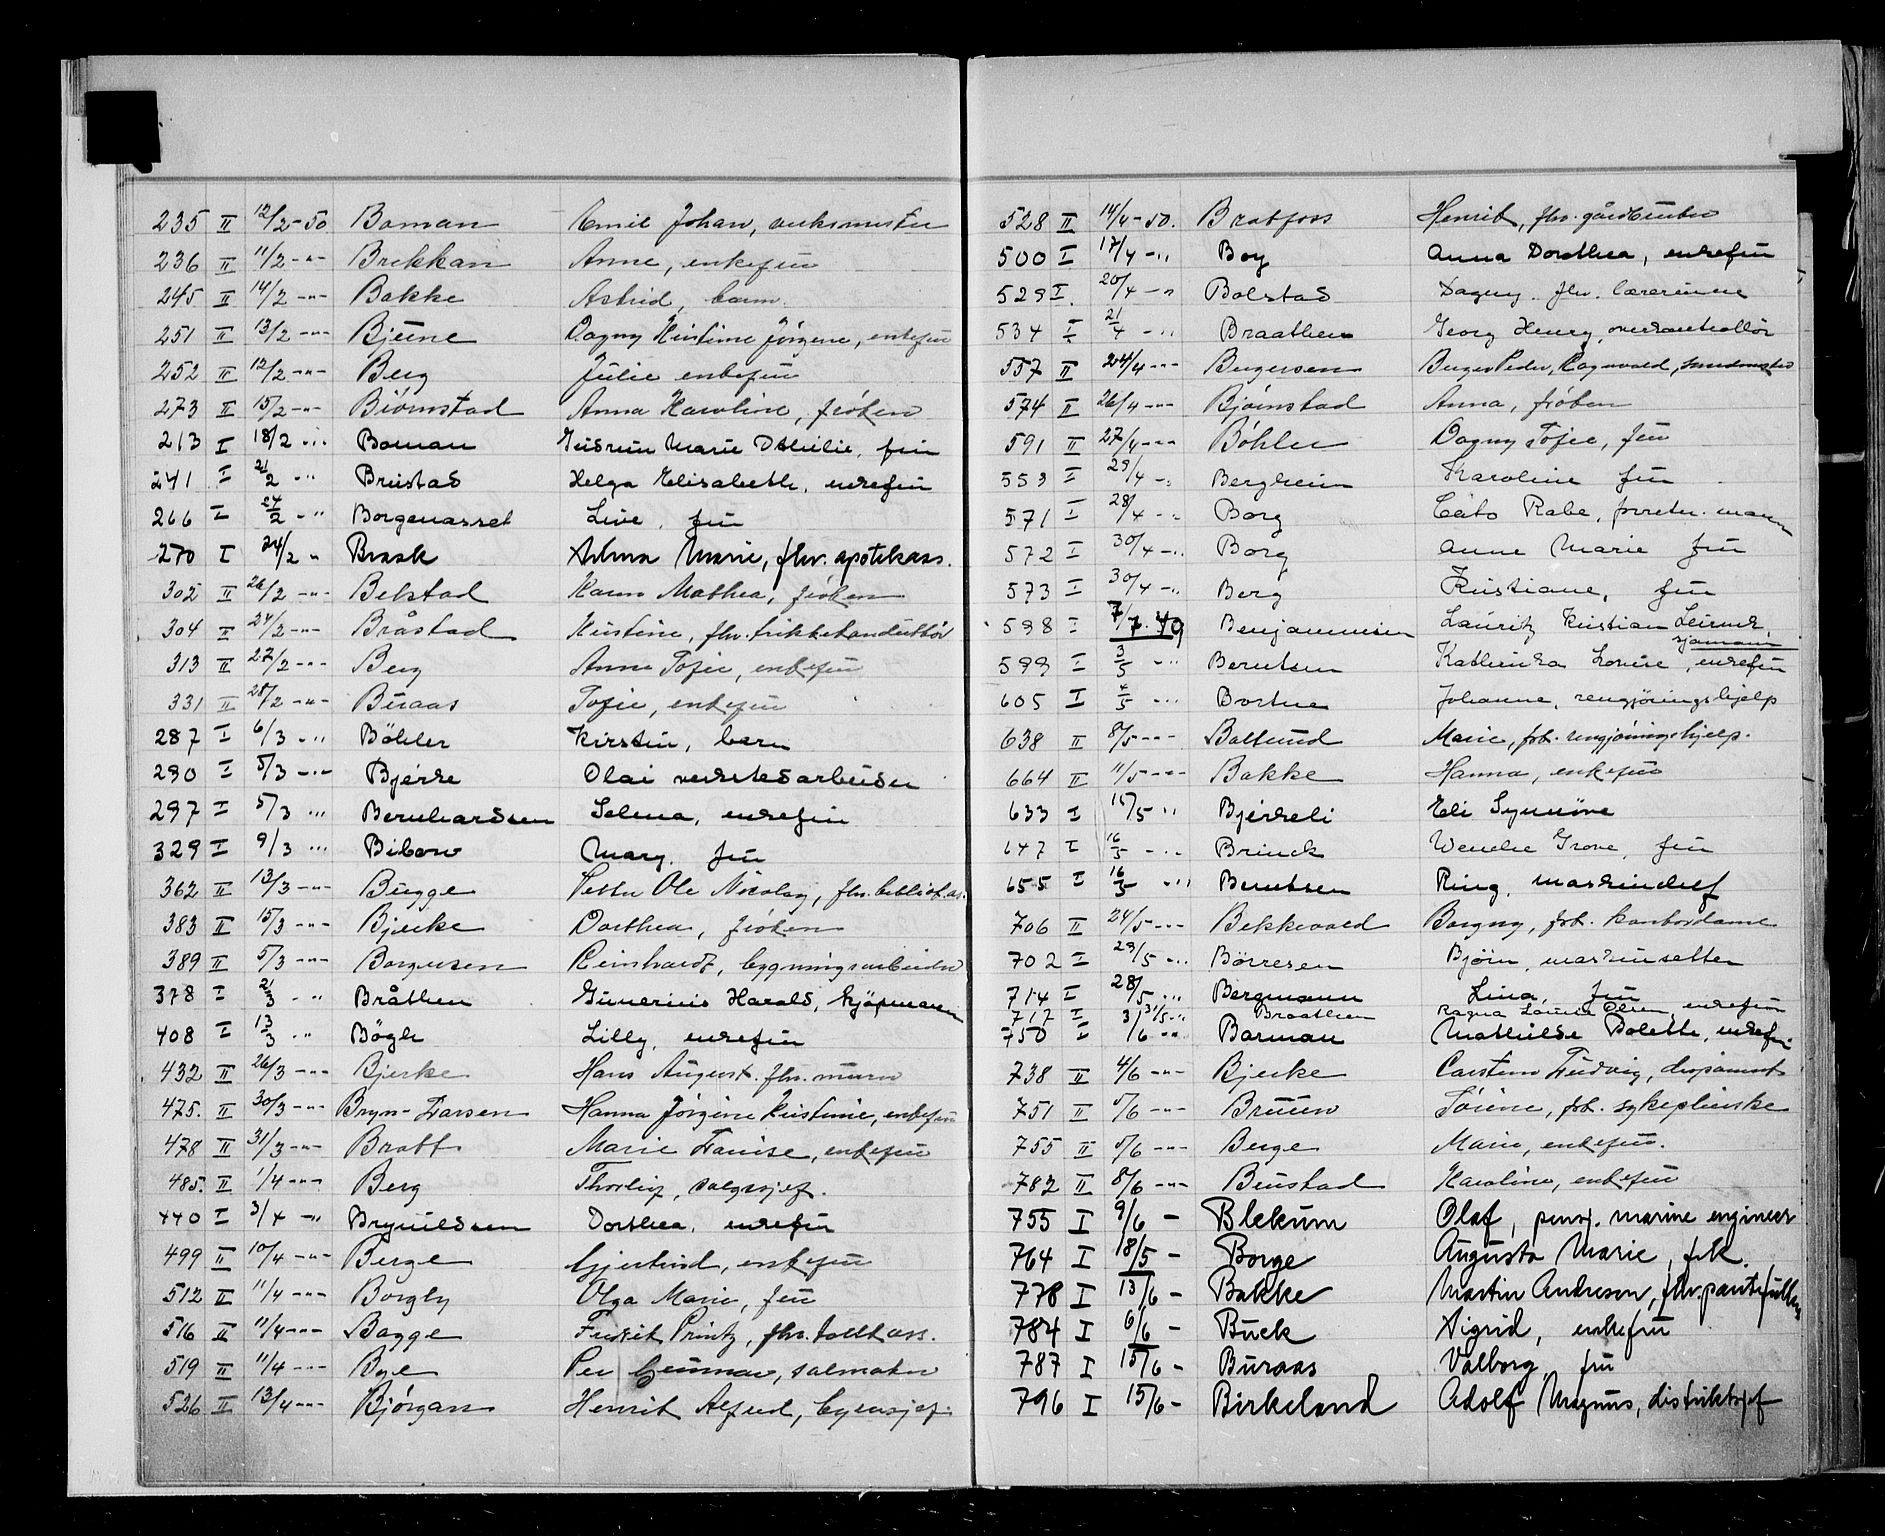 235 II 12/2-50 Boman Emil Johan, verksmester
236 II 11/2 -"- Brekkan Anne, enkefru
245 II 14/2 -"- Bakke Astrid, barn.
251 II 13/2 -"- Bjune Dagny Kristine Jørgine, enkefru
252 II 12/2 -"- Berg Julie enkefru
273 II 15/2 -"- Bjørnstad Anna Karoline, frøken
213 I 18/2 -"- Boman Gudrun Marie Othilie, fru
241 I 21/2 -"- Brustad Helga Elisabeth, enkefru
266 I 24/2 -"- Borgenasset Live, fru
270 I 24/2 " Brask Alma Marie, fhv. apotekass.
302 II 26/2 -"- Belstad Karen Mathea, frøken
304 II 24/2 -"- Bråstad Kristine, fhv. trikkekonduktør
313 II 27/2 -"- Berg Anne Sofie, enkefru
331 II 28/2 -"- Buraas Sofie, enkefru
287 I 6/3 -"- Böhler Kirstin, barn
290 I 5/3 -"- Bjerke Olai verkstedsarbeider
297 I 5/3 -"- Bernhardsen Selma, enkefru
329 I 9/3 -"- Bibow Mary, fru
362 II 13/3 -"- Bugge Ole Nicolay, fhv. bibliot.as.
383 II 15/3 -"- Bjerke Dorthea, frøken
389 II 5/3 -"- Borgersen Reinhardt, bygningsarbeider
378 I 21/3 -"- Bråthen Gunerius Harald, kjøpmann
408 I 13/3 -"- Bögh Lilly, enkefru
432 II 26/3 -"- Bjerke Hans August. fhv. murer
475. II 30/3 -"- Bryn-Larsen Hanna Jørgine Kristine, enkefru
478 II 31/3 -"- Bratt Marie Louise, enkefru
485. II 1/4 -"- Berg Thorleif, salgssjef.
440 I 3/4 -"- Brynildsen Dorthea, enkefru
499 II 10/4 -"- Berge Gjertrud, enkefru
512 II 11/4 -"- Borgly Olga Marie, fru
516 II 11/4 -"- Bagge Fredrik Printz, fhv. tollkass.
519 II 11/4 -"- Bye Per Gunnar, salmaker
526 II 13/4 -"- Bjørgan Henrik Alfred, byrusjef.
528 II 14/4-50. Bratfoss Henrik, fhv. gårdbruker
500 I 17/4 -"- Boy Anna Dorthea, enkefru
529 I. 20/4 -"- Bolstad Dagny. fhv. lærerinne
534 I 21/4 -"- Braathen Georg Henry, overkontrollør
557 II 24/4 -"- Bergersen Berger Peder, Ragnvald, smedmester
574 II 26/4 -"- Bjørnstad Anna, frøken
591 II 27/4 -"- Bøhler Dagny Sofie, fru
553 I 29/4 -"- Bergheim Karoline fru
571 I 28/4 -"- Borg Cato Rabe, forretn. mann
572 I 30/4 -"- Borg Anne Marie fru
573 I 30/4 -"- Berg Kristiane, fru
598 I 7/7.49 Benjaminsen Lauritz Kristian sjømann
599 I 3/5 -"- Berntsen Kathinka Lovise, enkefru
605 I 4/5 -"- Bortne Johanne, rengjøringshjelp
638 II 8/5 -"- Ballrud Marie, frh. rengjøringshjelp.
664 II 11/5 -"- Bakke Hanna, enkefru
633 I 15/5 -"- Bjerkeli Eli Synnøve
647 I 16/5 -"- Brinck Wenche Grove, fru
655 I 16/5 -"- Berntsen Ring, maskinchef
706 II 24/5 -"- Bekkevold Borgny, frh. kontordame
702 I 29/5 -"- Børresen Bjørn, maskinsetter
714 I 28/5 -"- Bergmann Lina, fru
717 I 31/5 -"- Braathen Ragna Louise Olsen, enkefru
750 I 3/6 -"- Barman Mathilde Bolette, enkefr.
738 II 4/6 -"- Bjerke Carsten Ludvig, disponent
751 II 5/6 -"- Bruun Sørine, frh. sykepleierske
755 II 5/6 -"- Berge Marie, enkefru.
782 II 8/6 -"- Brustad Karoline, enkefru
755 I 9/6 - Blekum Olaf, pensj. marine engineer
764 I 18/5 - Borge Augusta Marie, frk.
778 I 13/6 - Bakke Martin Andreson, fhv. pantefullm.
784 I 6/6 - Buck Sigrid, enkefru
787 I 15/6 - Buraas Valborg, fru
796 I 15/6 - Birkeland Adolf Magnus, distriktsjef